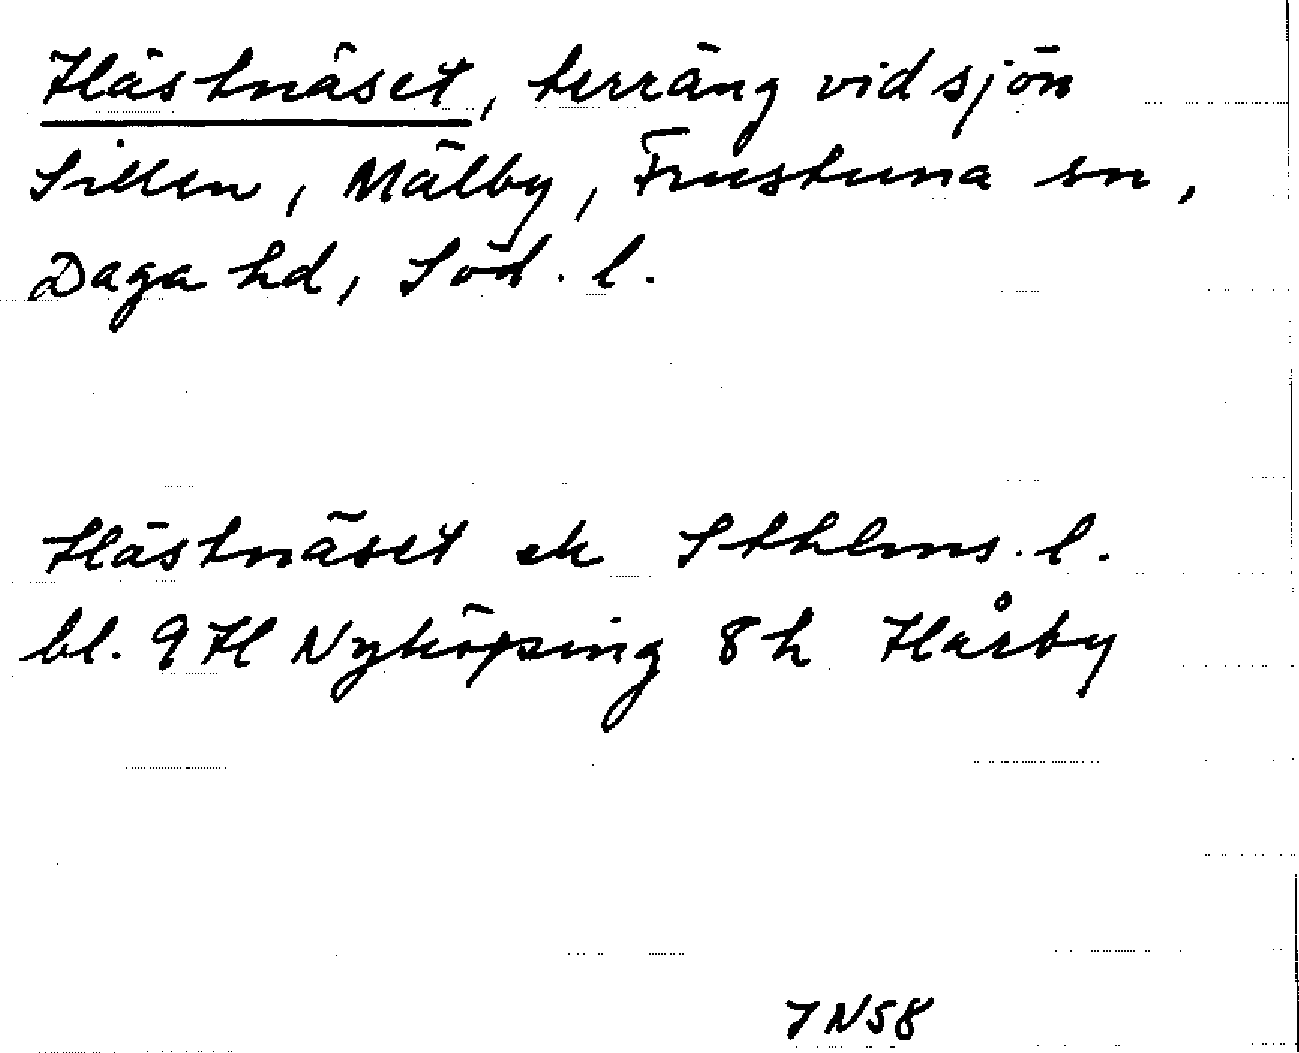 Hästnäset, terräng vid sjön
Sillen, Mälby, Frustuna sn,
Daga hd, Söd. l.
Hästnäset ek Sthlms. l.
bl. 9H Nyköping 8h Hårby
7N58